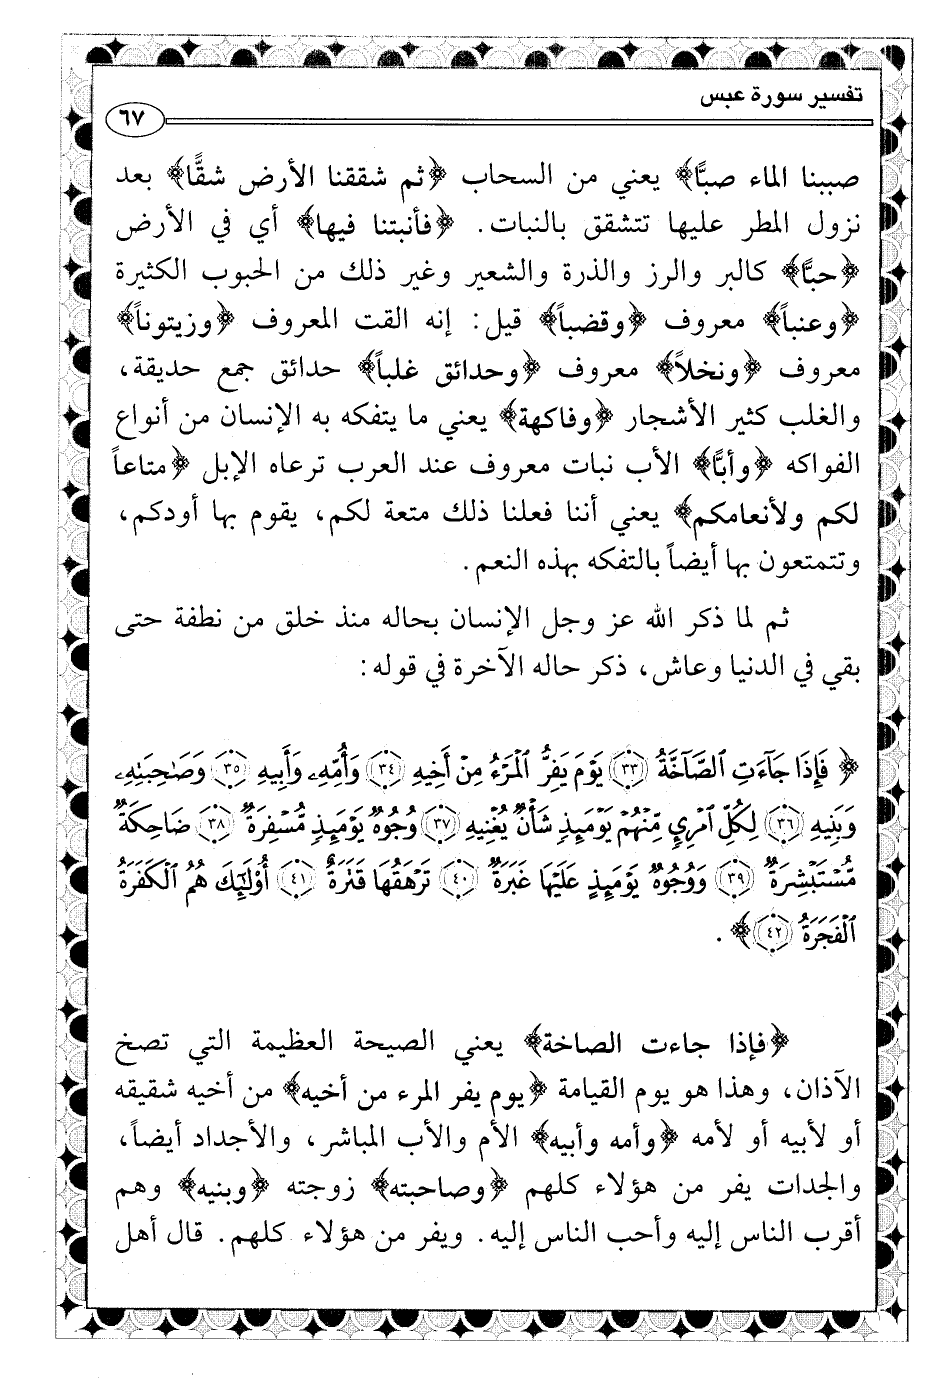 تفسير سورة عبس
٦٧
صببنا الماء صبًّا﴾ يعني من السحاب ﴿ثم شققنا الأرض شقًّا﴾ بعد
نزول المطر عليها تتشقق بالنبات. ﴿فأنبتنا فيها﴾ أي في الأرض
﴿حبًّا﴾ كالبر والرز والذرة والشعير وغير ذلك من الحبوب الكثيرة
﴿وعنباً﴾ معروف ﴿وقضباً﴾ قيل: إنه القت المعروف ﴿وزيتوناً﴾
معروف ﴿ونخلاً﴾ معروف ﴿وحدائق غلباً﴾ حدائق جمع حديقة،
والغلب كثير الأشجار ﴿وفاكهة﴾ يعني ما يتفكه به الإنسان من أنواع
الفواكه ﴿وأبًّا﴾ الأب نبات معروف عند العرب ترعاه الإبل ﴿متاعاً
لكم ولأنعامكم﴾ يعني أننا فعلنا ذلك متعة لكم، يقوم بها أودكم،
وتتمتعون بها أيضاً بالتفكه بهذه النعم.
ثم لما ذكر الله عز وجل الإنسان بحاله منذ خلق من نطفة حتى
بقي في الدنيا وعاش، ذكر حاله الآخرة في قوله:
﴿ فَإِذَا جَآءَتِ ٱلصَّآخَّةُ ٣٣ يَوْمَ يَفِرُّ ٱلْمَرْءُ مِنْ أَخِيهِ ٣٤ وَأُمِّهِۦ وَأَبِيهِ ٣٥ وَصَٰحِبَتِهِۦ
وَبَنِيهِ ٣٦ لِكُلِّ ٱمْرِئٍ مِّنْهُمْ يَوْمَئِذٍ شَأْنٌ يُغْنِيهِ ٣٧ وُجُوهٌ يَوْمَئِذٍ مُّسْفِرَةٌ ٣٨ ضَاحِكَةٌ
مُّسْتَبْشِرَةٌ ٣٩ وَوُجُوهٌ يَوْمَئِذٍ عَلَيْهَا غَبَرَةٌ ٤٠ تَرْهَقُهَا قَتَرَةٌ ٤١ أُو۟لَٰٓئِكَ هُمُ ٱلْكَفَرَةُ
ٱلْفَجَرَةُ ٤٢﴾.
﴿فإذا جاءت الصاخة﴾ يعني الصيحة العظيمة التي تصخ
الآذان، وهذا هو يوم القيامة ﴿يوم يفر المرء من أخيه﴾ من أخيه شقيقه
أو لأبيه أو لأمه ﴿وأمه وأبيه﴾ الأم والأب المباشر، والأجداد أيضاً،
والجدات يفر من هؤلاء كلهم ﴿وصاحبته﴾ زوجته ﴿وبنيه﴾ وهم
أقرب الناس إليه وأحب الناس إليه. ويفر من هؤلاء كلهم. قال أهل